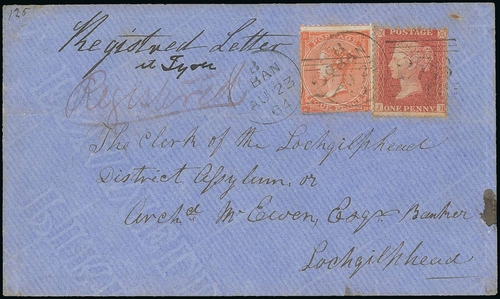 125
Registred Letter
Registered
POSTAGE
8
BAN
AU 23
64
ONE PENNY
The Clerk of the Lochgilphead
District Assylum, or
Archd McEwen, Esqr Banker
Lochgilphead